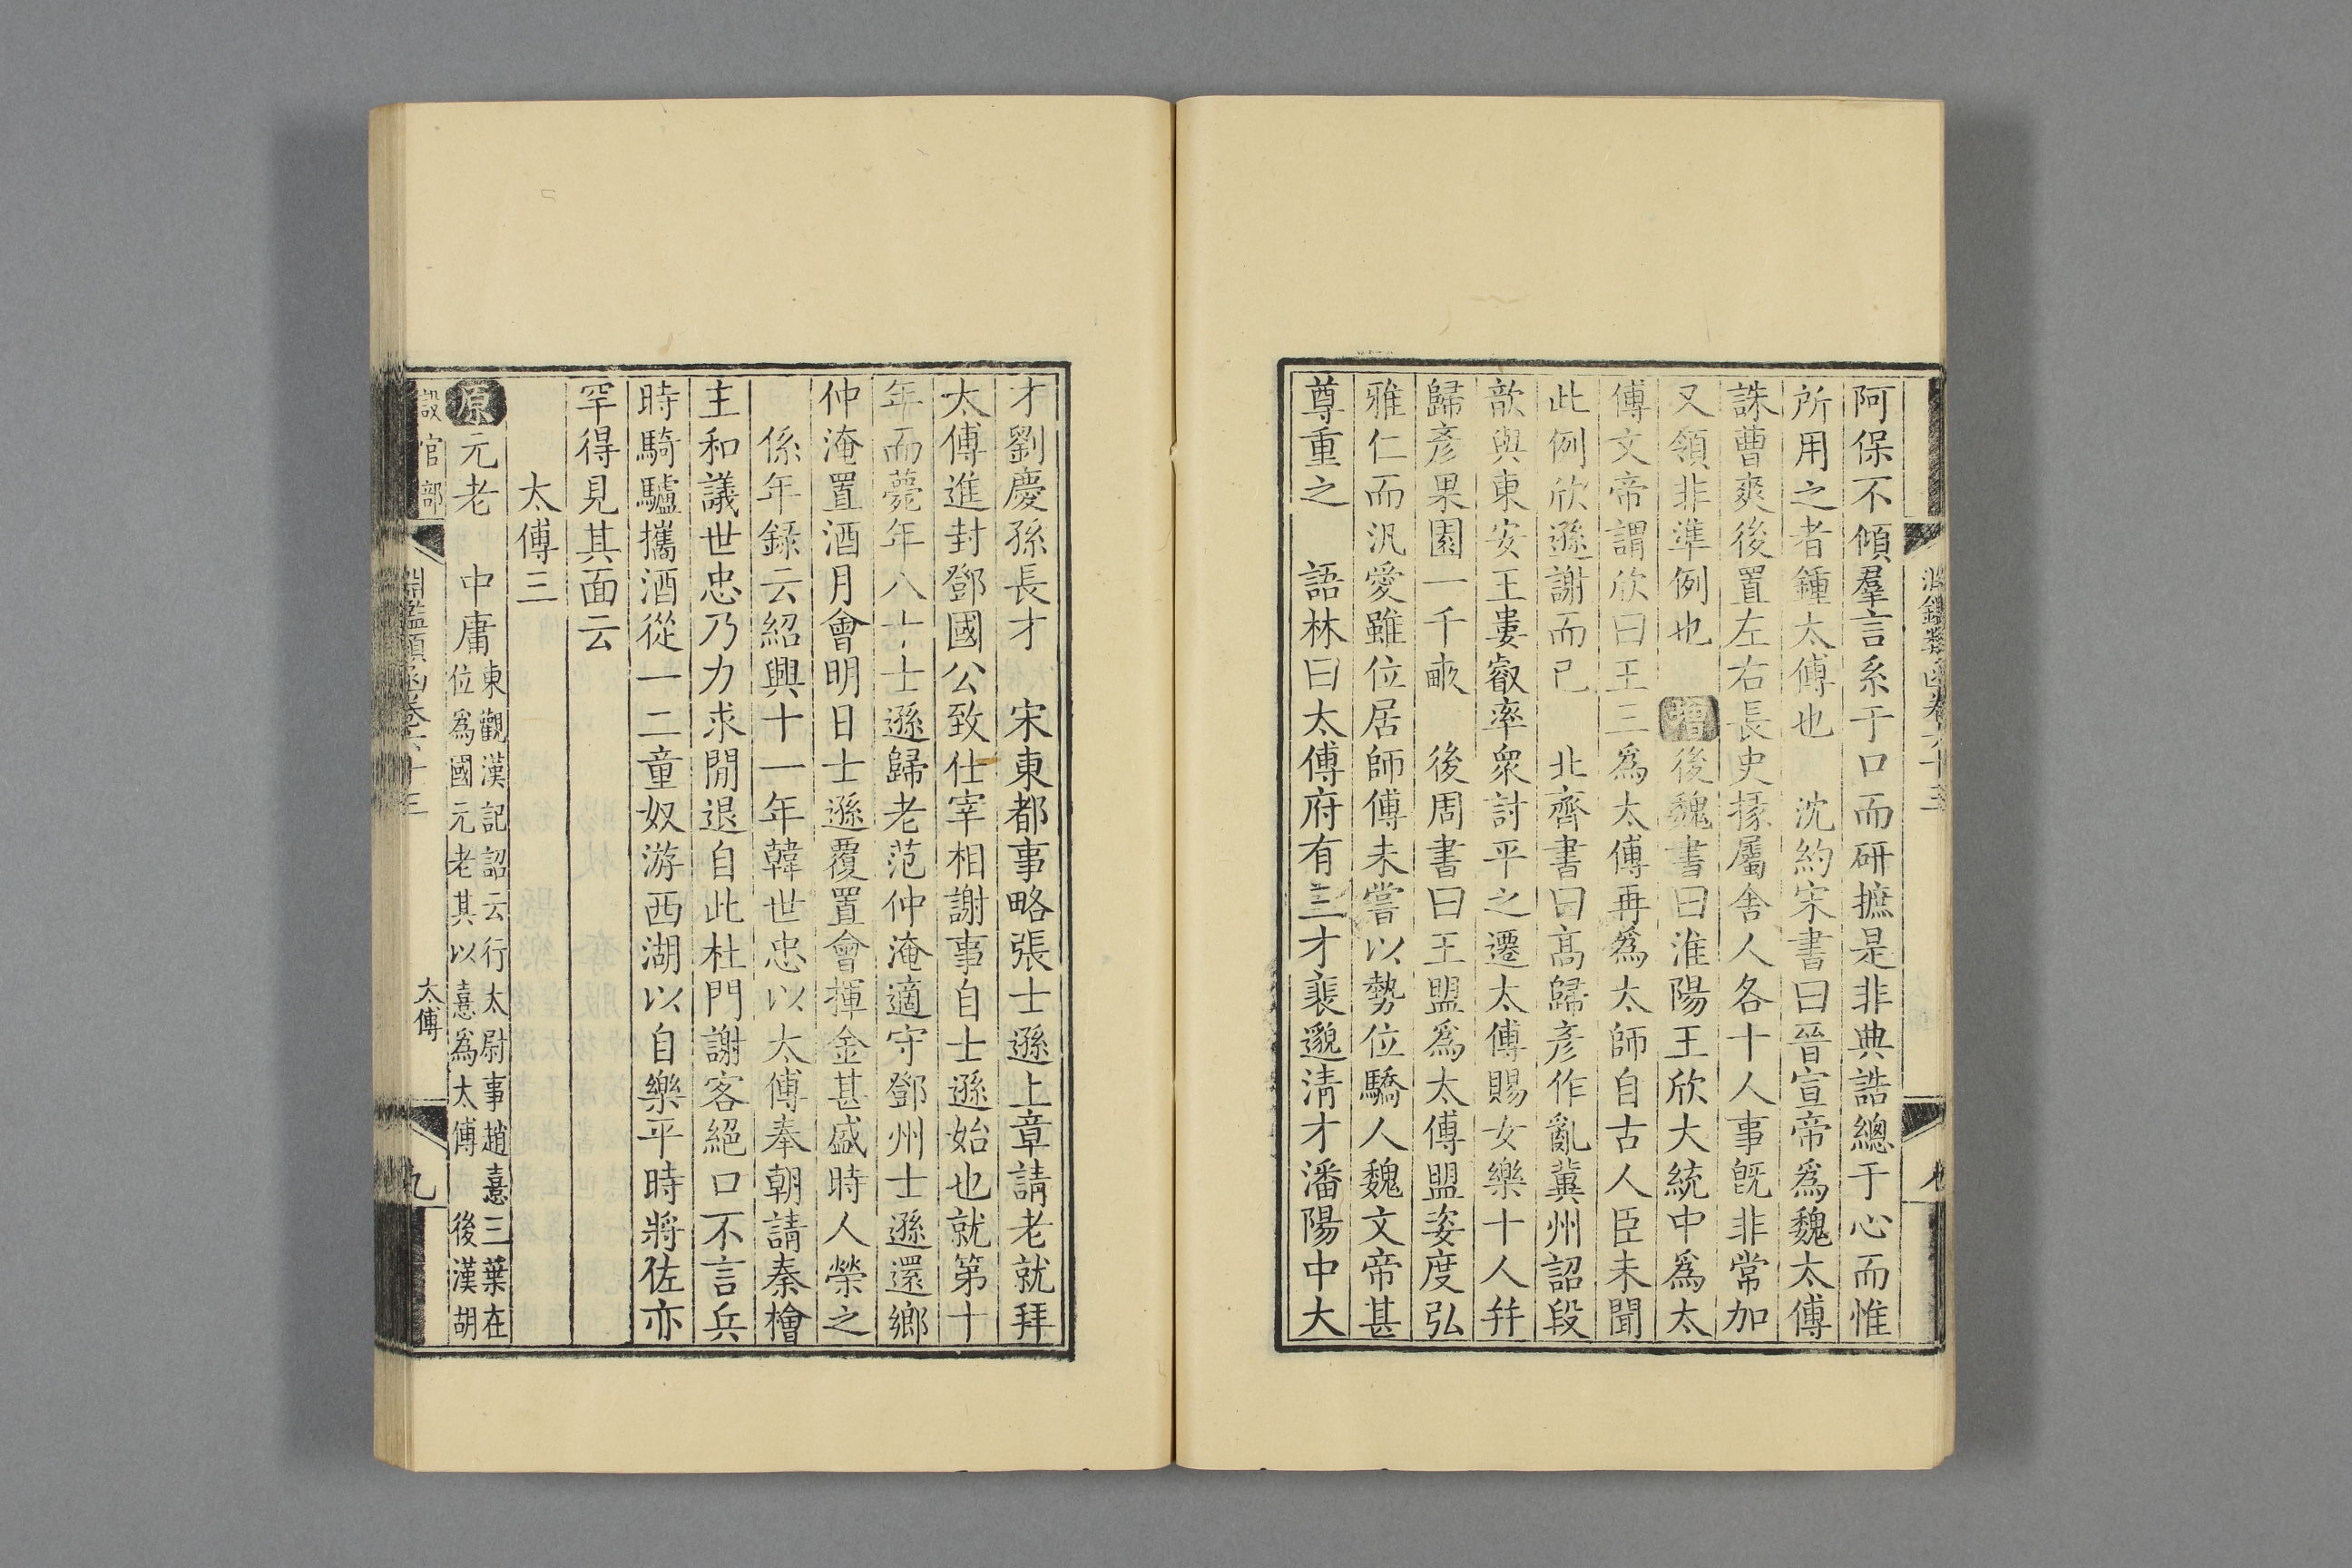 阿保不傾羣言系于口而研摭是非典誥總于心而惟
所用之者鍾太傅也　沈約宋書曰晉宣帝爲魏太傅
誅曹爽後置左右長史掾屬舍人各十人事旣非常加
又領非準例也　增後魏書曰淮陽王欣大統中爲太
傅文帝謂欣曰王三爲太傅再爲太師自古人臣未聞
此例欣遜謝而已　北齊書曰高歸彥作亂冀州詔段
歆與東安王婁叡率衆討平之遷太傅賜女樂十人幷
歸彥果園一千畝　後周書曰王盟爲太傅盟姿度弘
雅仁而汎愛雖位居師傅未嘗以勢位驕人魏文帝甚
尊重之　語林曰太傅府有三才裴邈清才潘陽中大
才劉慶孫長才　宋東都事略張士遜上章請老就拜
太傅進封鄧國公致仕宰相謝事自士遜始也就第十
年而薨年八十士遜歸老范仲淹適守鄧州士遜還鄉
仲淹置酒月會明日士遜覆置會揮金甚盛時人榮之
係年錄云紹興十一年韓世忠以太傅奉朝請秦檜
主和議世忠乃力求閒退自此杜門謝客絕口不言兵
時騎驢攜酒從一二童奴游西湖以自樂平時將佐亦
罕得見其面云
太傅三
原元老　中庸東觀漢記詔云行太尉事趙憙三葉在
位爲國元老其以憙爲太傅　後漢胡
設官部
淵鑑類函卷六十三
太傅
九